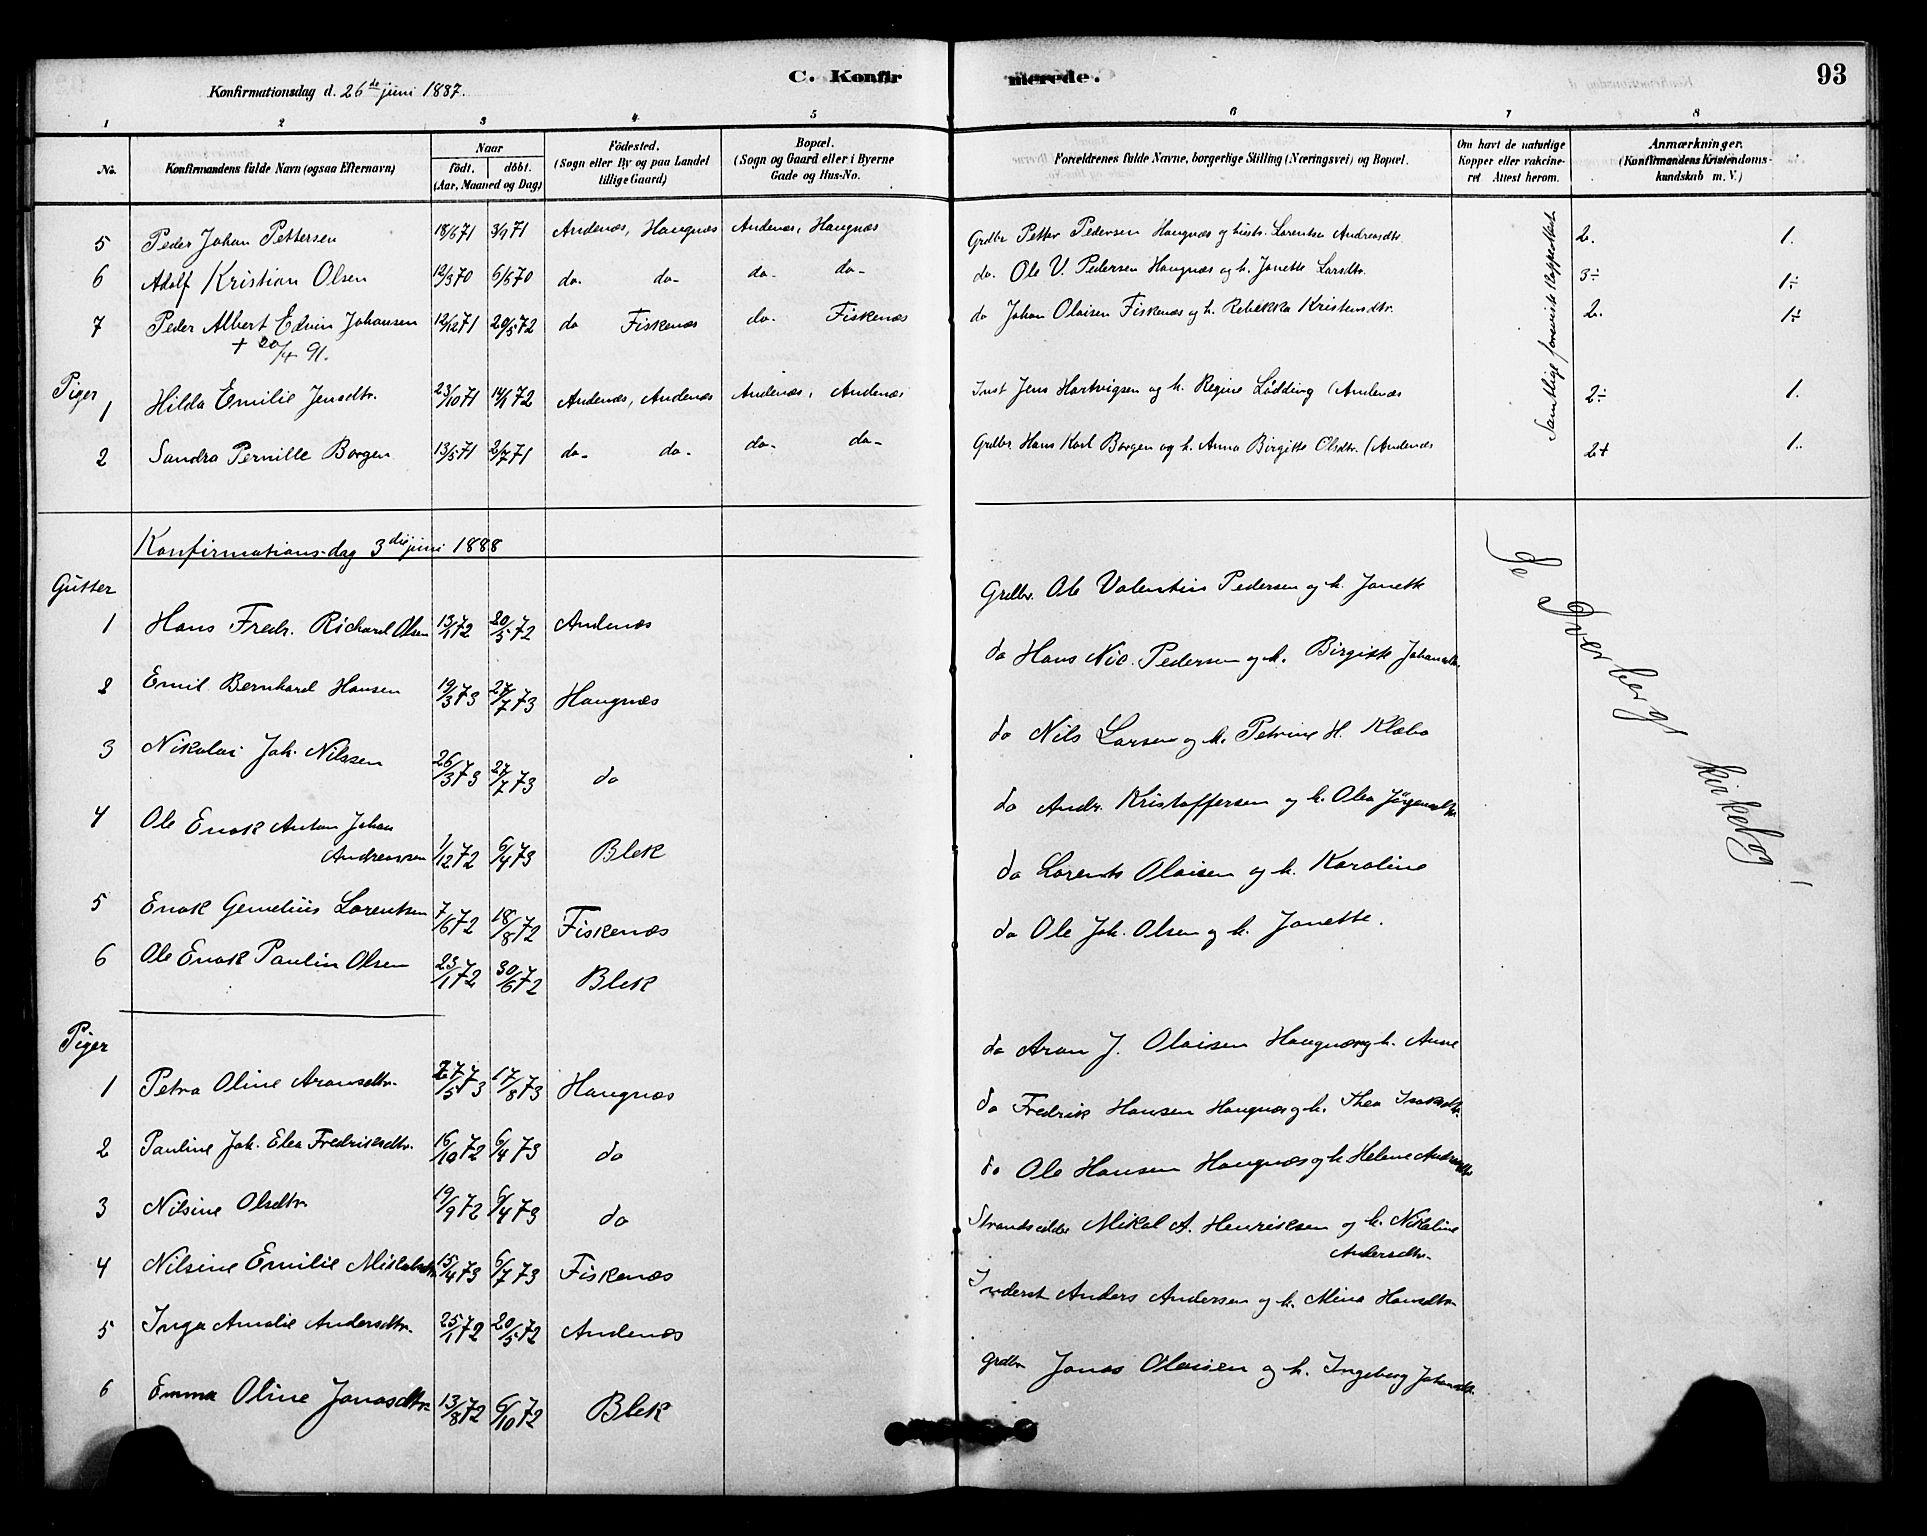 C. Konfirmerede.
93
Konfirmationsdag d. 26de juni 1887.
1 2 3 4 5 6 7 8
No.
Konfirmandens fulde Navn (ogsaa Efternavn)
Naar
født. døbt.
(Aar, Maaned og Dag)
Fødested.
(Sogn eller By og paa Landet
tillige Gaard)
Bopæl.
(Sogn og Gaard eller i Byerne
Gade og Hus-No.
Forældrenes fulde Navne, borgerlige Stilling (Næringsvei) og Bopæl.
Om havt de naturlige
Kopper eller vakcine-
ret Attest herom.
Anmærkninger.
(Konfirmandens Kristendoms-
kundskab m. V.)
5 Peder Johan Pettersen 18/6 71 3/9 71 Andenæs, Haugnæs Andenæs, Haugnæs Grdbr Petter Pedersen Haugnæs og hustr. Lorentse Andreasdtr. 2. 1.
6 Adolf Kristian Olsen 12/3 70 6/6 70 do. do- do- do- do. Ole V. Pedersen Haugnæs og h. Janette Larsdtr. 3÷ 1÷
7 Peder Albert Edvin Johansen 12/12 71 20/5 72 do Fiskenæs do. Fiskenæs do Johan Olaisen Fiskenæs og h. Rebekka Kristensdtr. 2. 1÷
+ 20/4 91.
Samtlige forevist Koppeattest
Piger
1 Hilda Emilie Jensdtr. 23/10 71 14/1 72 Andenæs, Andenæs Andenæs, Andenæs Inst Jens Hartvigsen og h. Regine Lødding (Andenæs 2÷ 1.
2 Sandra Pernille Borgen 13/5 71 2/7 71 do- do- do- do- Grdbr Hans Karl Borgen og h. Anna Birgitte Olsdtr. (Andenæs 2+ 1..
Konfirmationsdag 3die juni 1888
Se Dverbergs kirkebog
Gutter
1 Hans Fredr. Richard Olsen 13/1 72 20/5 72 Andenæs Grdbr. Ole Valentin Pedersen og h. Janette
2 Emil Bernhard Hansen 19/3 73 27/7 73 Haugnæs do Hans Nic. Pedersen og h. Birgitte Johansdtr.
3 Nikolai Joh. Nilssen 26/3 73 27/7 73 do do Nils Larsen og h. Petrine H. Klæbo
4 Ole Enok Anton Johan
Andreassen 1/12 72 6/4 73 Blek do Andr. Kristoffersen og h. Olea Jørgensdtr
5 Enok Gemelius Lorentsen 7/6 72 18/8 72 Fiskenæs do Lorents Olaisen og h. Karoline
6 Ole Enok Paulin Olsen 23/1 72 30/6 72 Blek do Ole Joh. Olsen og h. Janette.
Piger
1 Petra Oline Aronsdtr. 27/5 73 17/8 73 Haugnæs do Aron J. Olaisen Haugnæs og h. Anne
2 Pauline Joh. Elea Fredriksdtr. 16/10 72 6/4 73 do do Fredrik Hansen Haugnæs og h. Thea Isaksdtr.
3 Nilsine Olsdtr 19/9 72 6/4 73 do do Ole Hansen Haugnæs og h. Helene Andersdtr
4 Nilsine Emilie Mikalsdtr 15/4 73 6/7 73 Fiskenæs Strandsidder Mikal A. Henriksen og h. Nikoline
Andersdtr.
5 Inga Amalie Andersdtr. 25/1 72 20/5 72 Andenæs Inderst Anders Andersen og h. Mina Hansdtr
6 Emma Oline Jonasdtr. 13/8 72 6/10 72 Blek Grdbr Jonas Olaisen og h. Ingeborg Johansdtr.